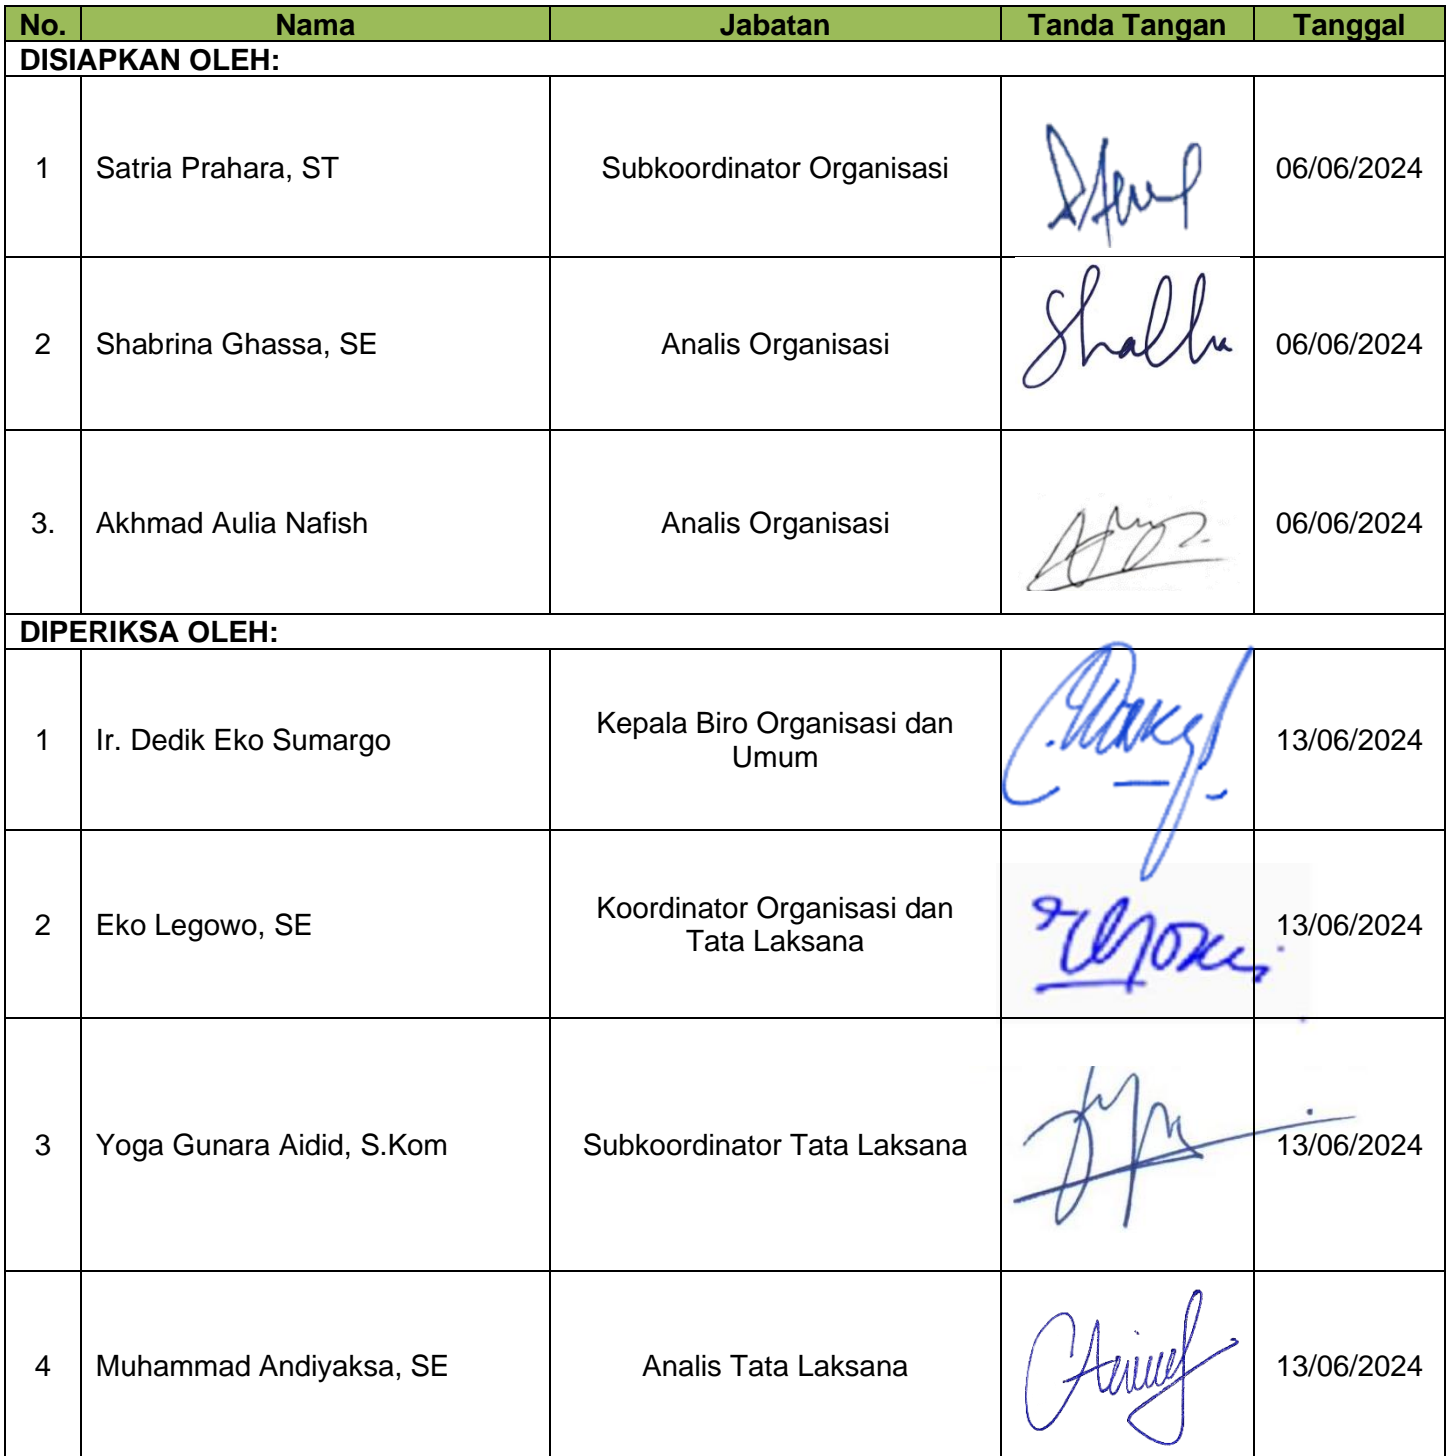 No. Nama Jabatan Tanda Tangan Tanggal
DISIAPKAN OLEH:
1 Satria Prahara, ST Subkoordinator Organisasi 06/06/2024
2 Shabrina Ghassa, SE Analis Organisasi 06/06/2024
3. Akhmad Aulia Nafish Analis Organisasi 06/06/2024
DIPERIKSA OLEH:
1 Ir. Dedik Eko Sumargo Kepala Biro Organisasi dan
Umum 13/06/2024
2 Eko Legowo, SE Koordinator Organisasi dan
Tata Laksana 13/06/2024
3 Yoga Gunara Aidid, S.Kom Subkoordinator Tata Laksana 13/06/2024
4 Muhammad Andiyaksa, SE Analis Tata Laksana 13/06/2024